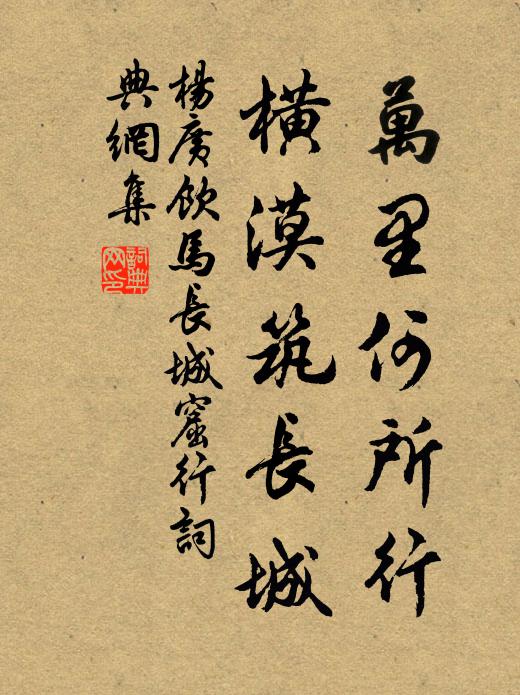 萬里何所行
橫漠筑長城
楊廣飲馬長城窟行詞
典網集
詞典
网印